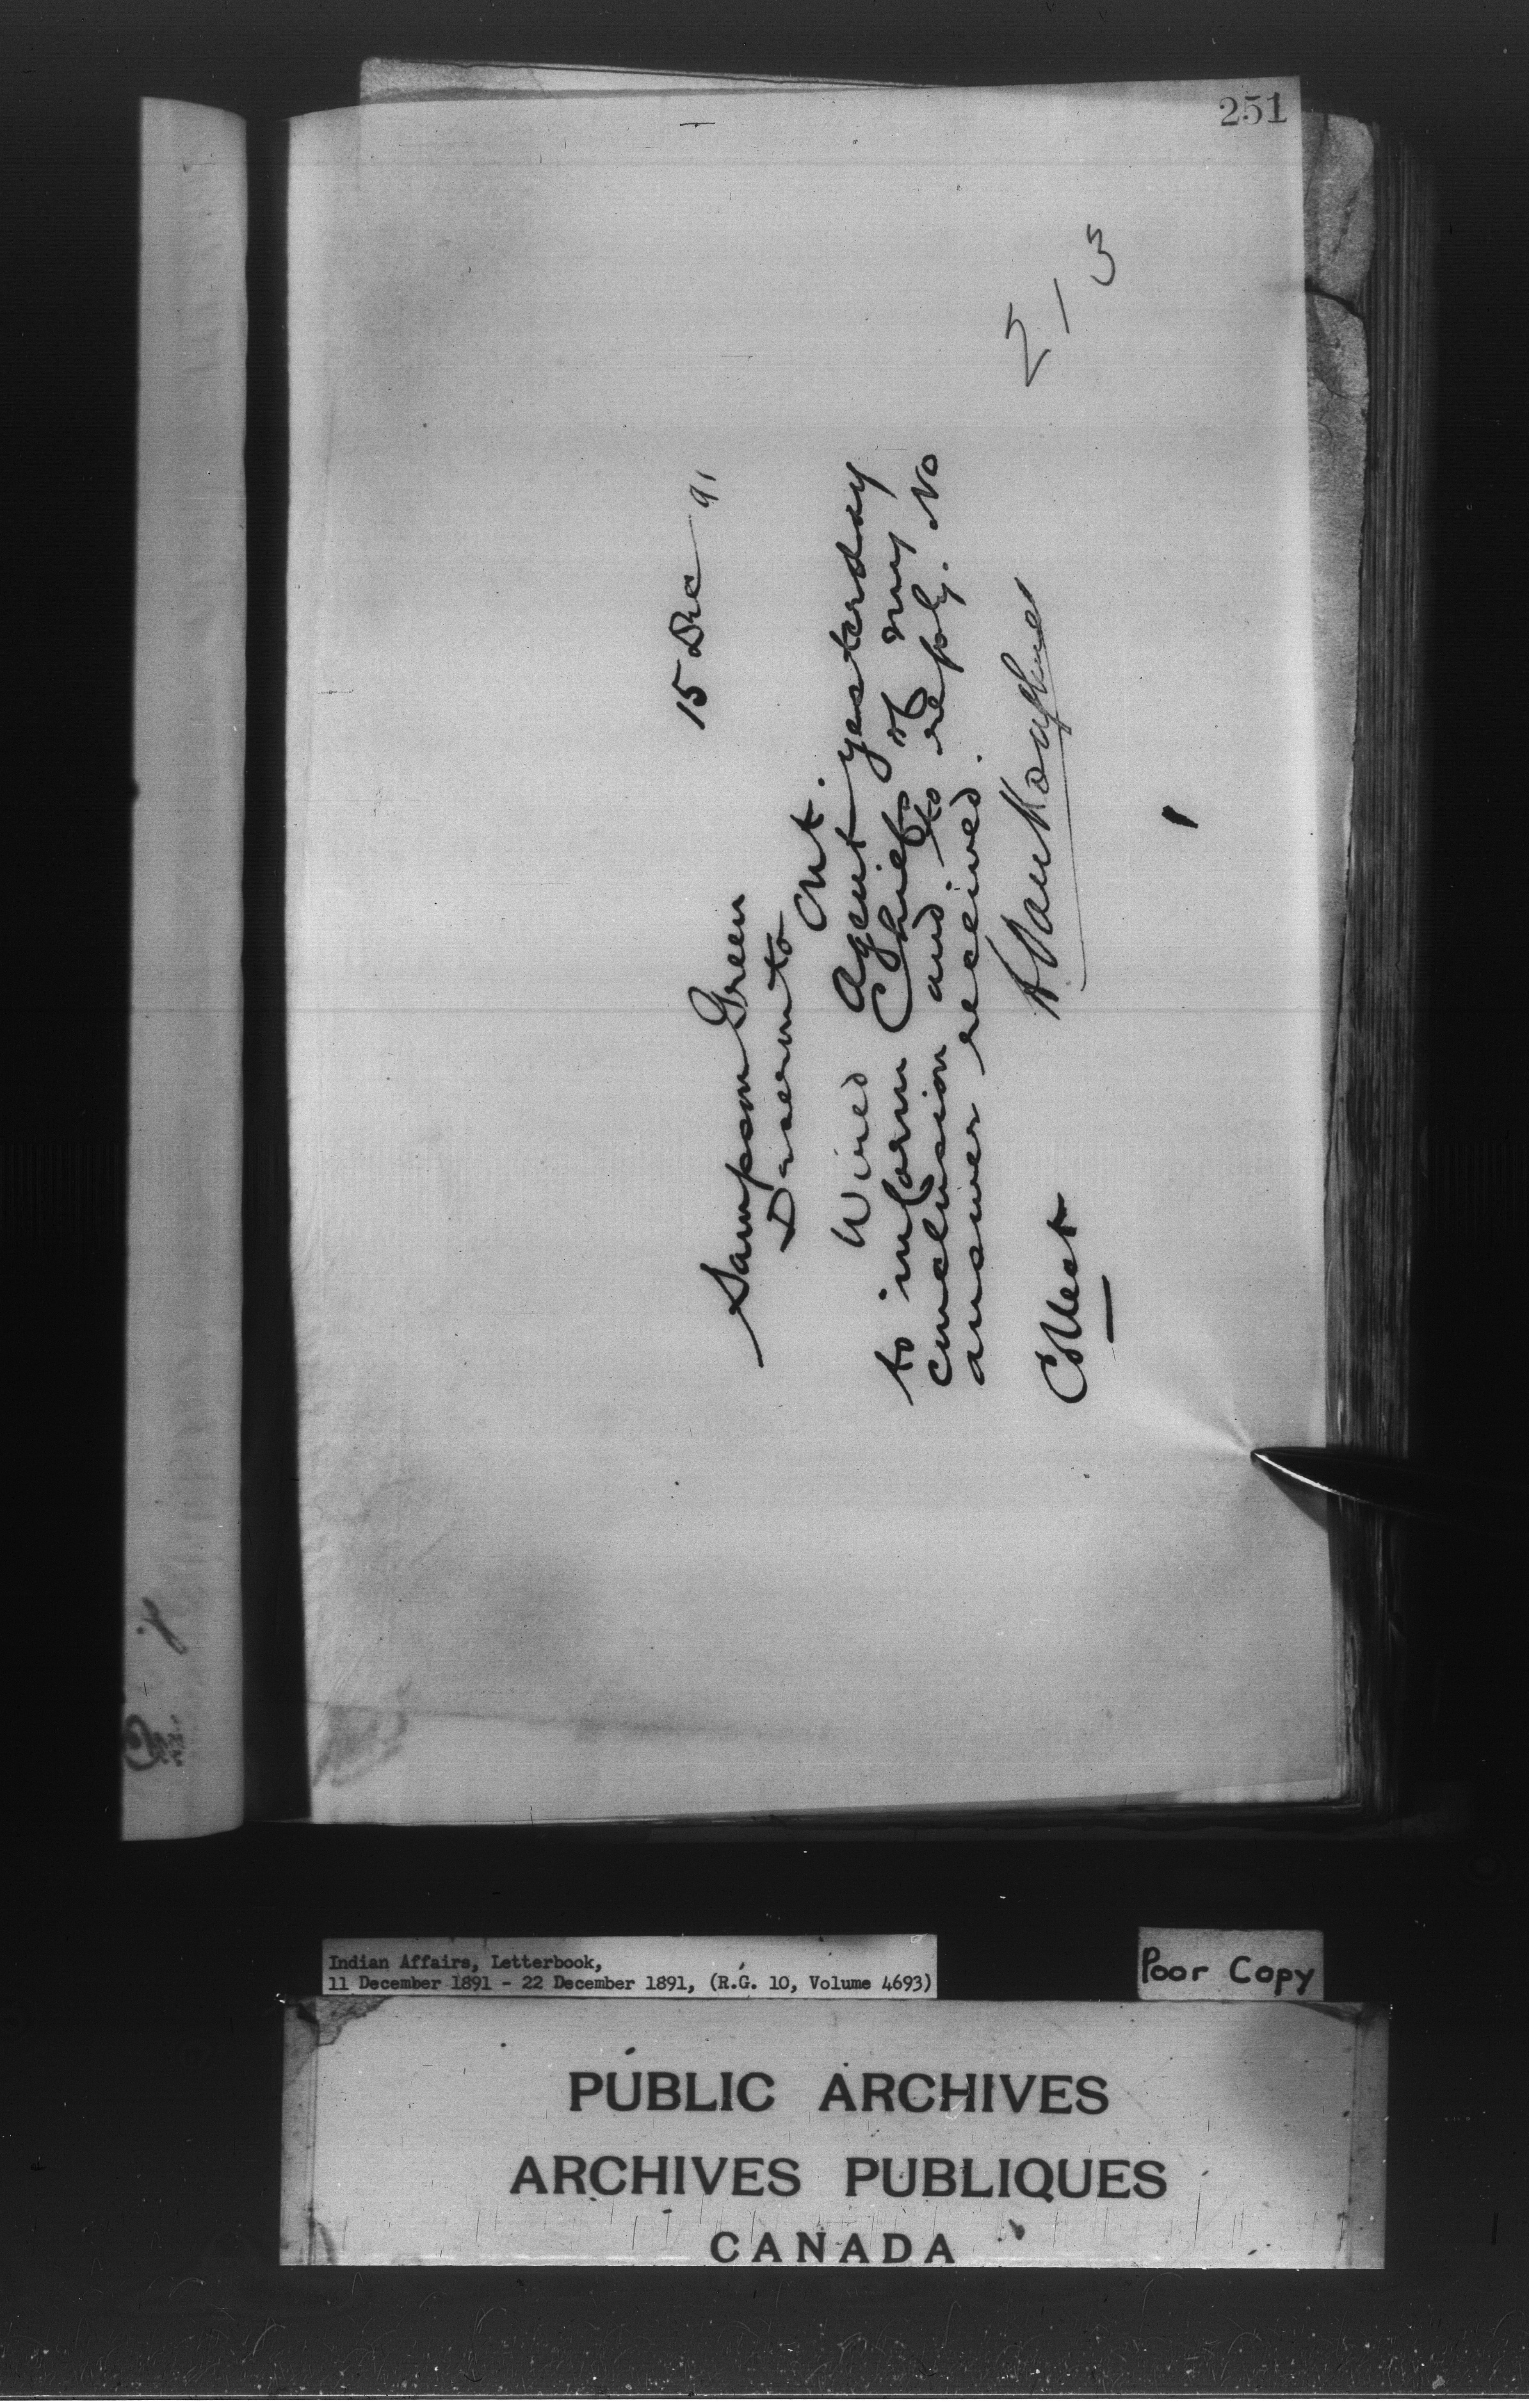 251
15 Dec 91
Sampson Green
Deseronto
Ont.
Wired Agent yesterday
to inform Chiefs of my
conclusion and to reply. No
answer received.
L. Vankoughnet
Collect
Indian Affairs, Letterbook,
11 December 1891 - 22 December 1891, (R.G. 10, Volume 4693)
Poor Copy
PUBLIC ARCHIVES
ARCHIVES PUBLIQUES
CANADA